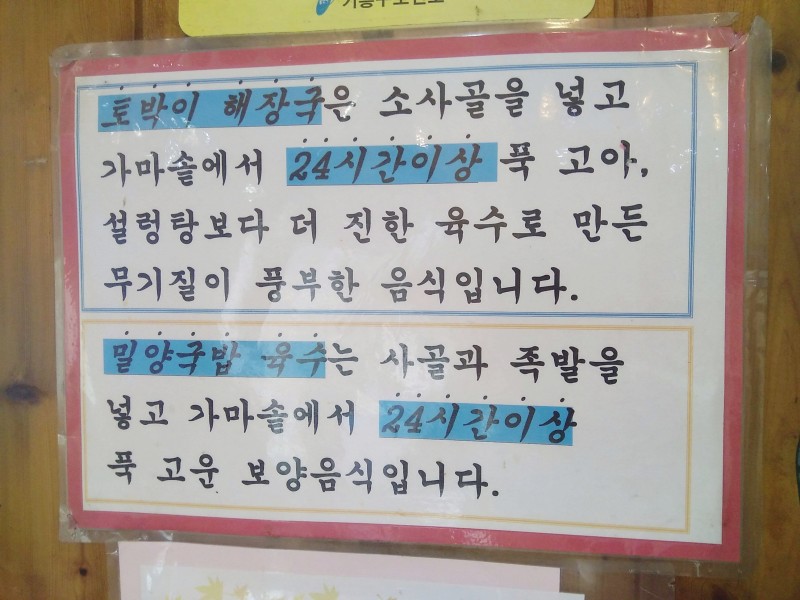 토박이 해장국은 소사골을 넣고
가마솥에서 24시간이상 푹 고아,
설렁탕보다 더 진한 육수로 만든
무기질이 풍부한 음식입니다.
밀양국밥 육수는 사골과 족발을
넣고 가마솥에서 24시간이상
푹 고운 보양음식입니다.